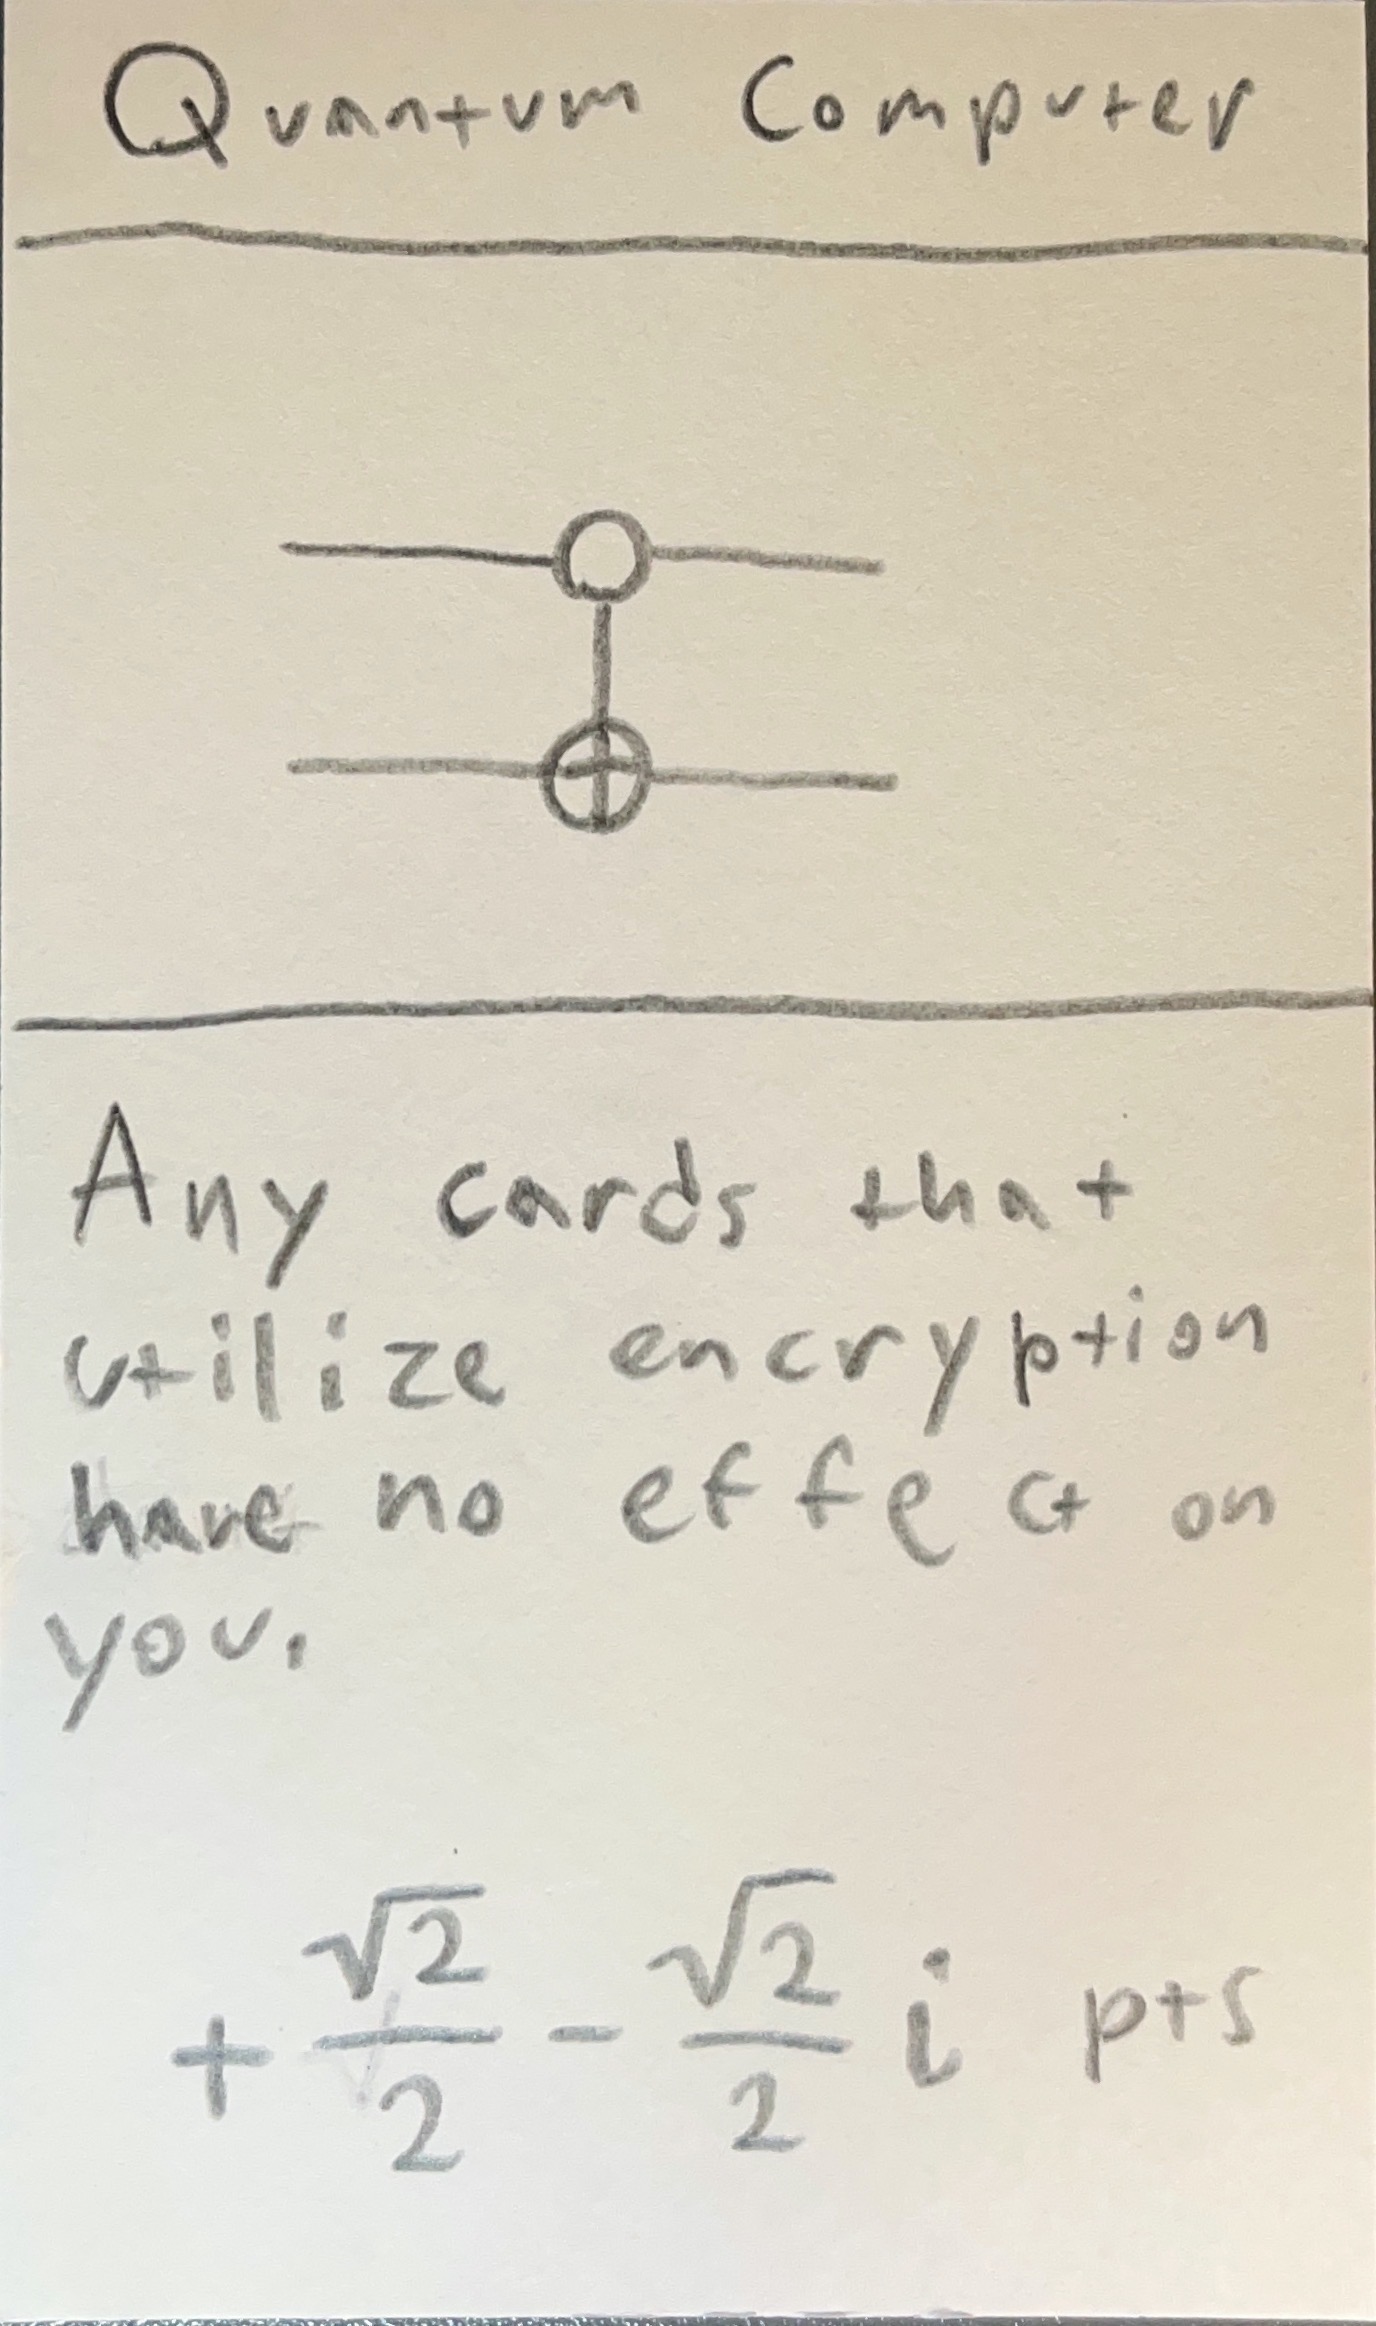 Quantum Computer
Any cards that
utilize encryption
have no effect on
you.
+ √2/2 - √2/2 i pts